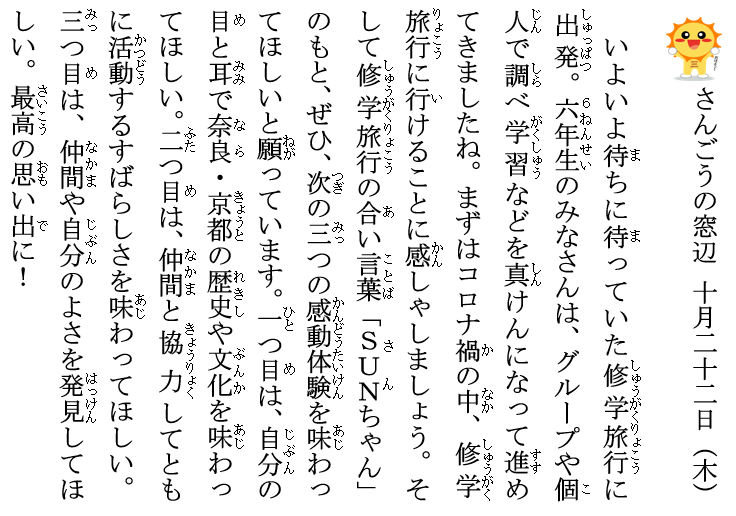 さんごうの窓辺 十月二十二日(木)
いよいよ待ちに待っていた修学旅行に
出発。六年生のみなさんは、グループや個
人で調べ学習などを真けんになって進め
てきましたね。まずはコロナ禍の中、修学
旅行に行けることに感しゃしましょう。そ
して修学旅行の合い言葉「SUNちゃん」
のもと、ぜひ、次の三つの感動体験を味わっ
てほしいと願っています。一つ目は、自分の
目と耳で奈良・京都の歴史や文化を味わっ
てほしい。二つ目は、仲間と協力してとも
に活動するすばらしさを味わってほしい。
三つ目は、仲間や自分のよさを発見してほ
しい。最高の思い出に!